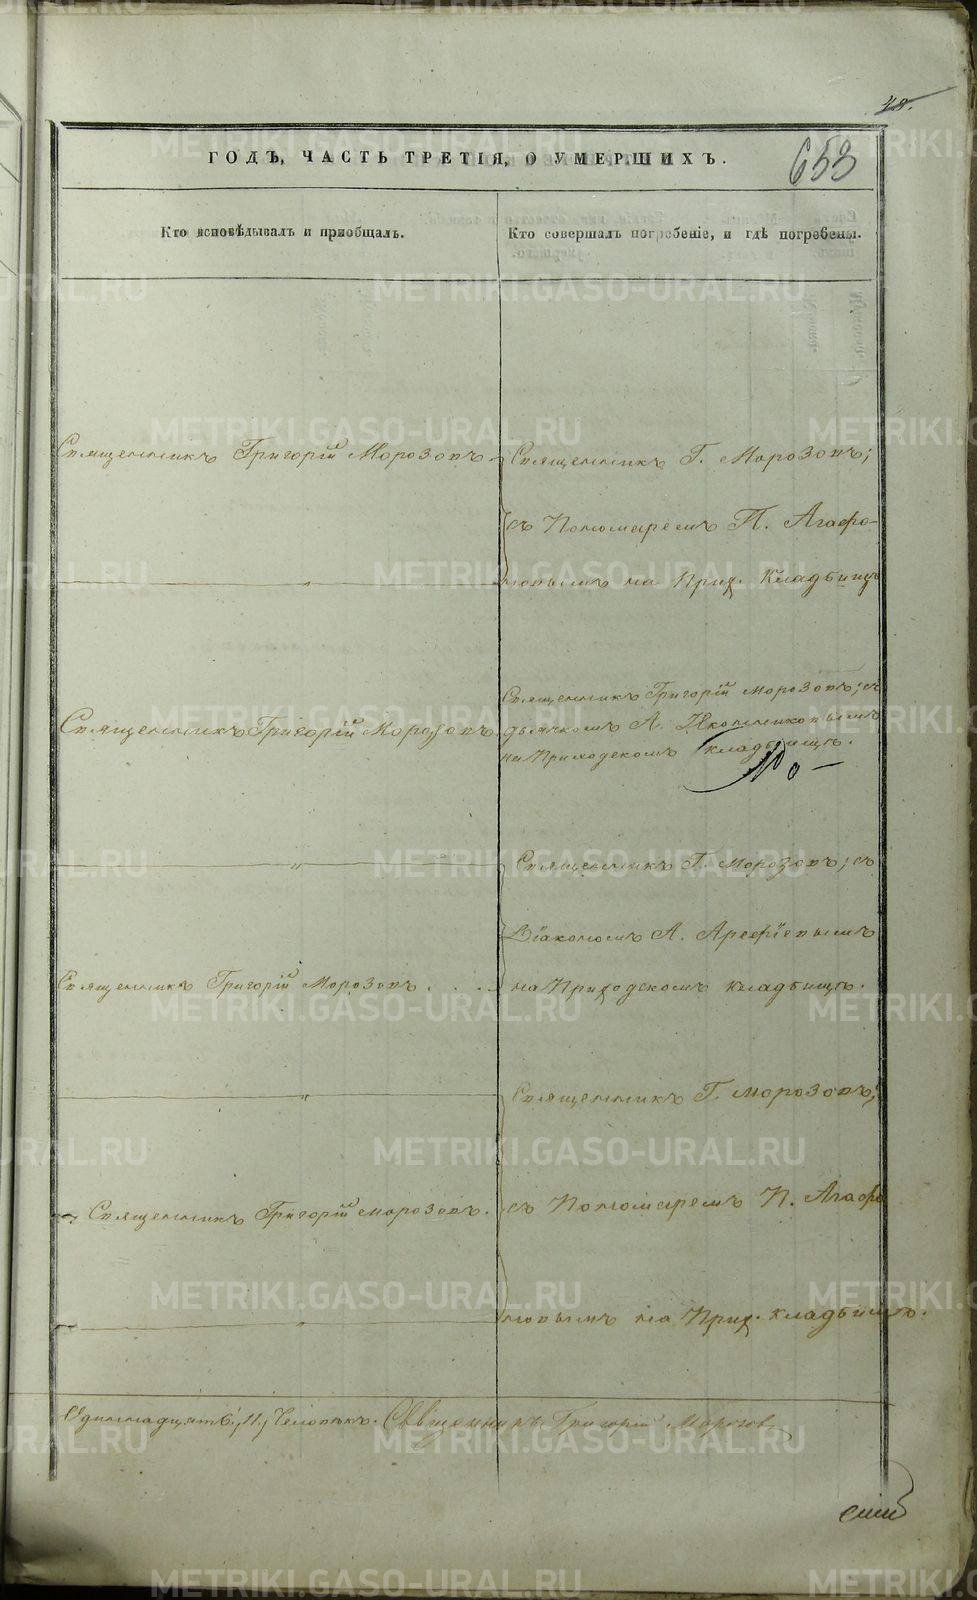 48.
ГОДЪ, ЧАСТЬ ТРЕТІЯ, О УМЕРШИХЪ.
653
Кто исповѣдывалъ и пріобщалъ.
Кто совершалъ погребеніе, и гдѣ погребены.
Священникъ Григорій Морозовъ
Священникъ Г. Морозовъ;
съ Пономаремъ П. Агафо-
новымъ на Прих. Кладбищѣ
Священникъ Григорій Морозовъ
Священникъ Григорій Морозовъ; съ
дьячкомъ А. Иконниковымъ
на Приходскомъ кладбищѣ.
Священникъ Г. Морозовъ; съ
Діакономъ А. Арефіевымъ
Священникъ Григорій Морозовъ . . .
на Приходскомъ кладбищѣ.
Священникъ Г. Морозовъ;
Священникъ Григорій Морозовъ.
съ Пономаремъ П. Агафо
новымъ на Прих. кладбищѣ.
Одиннадцать, 11, Человѣкъ. Священникъ Григорій Морозов
METRIKI.GASO-URAL.RU